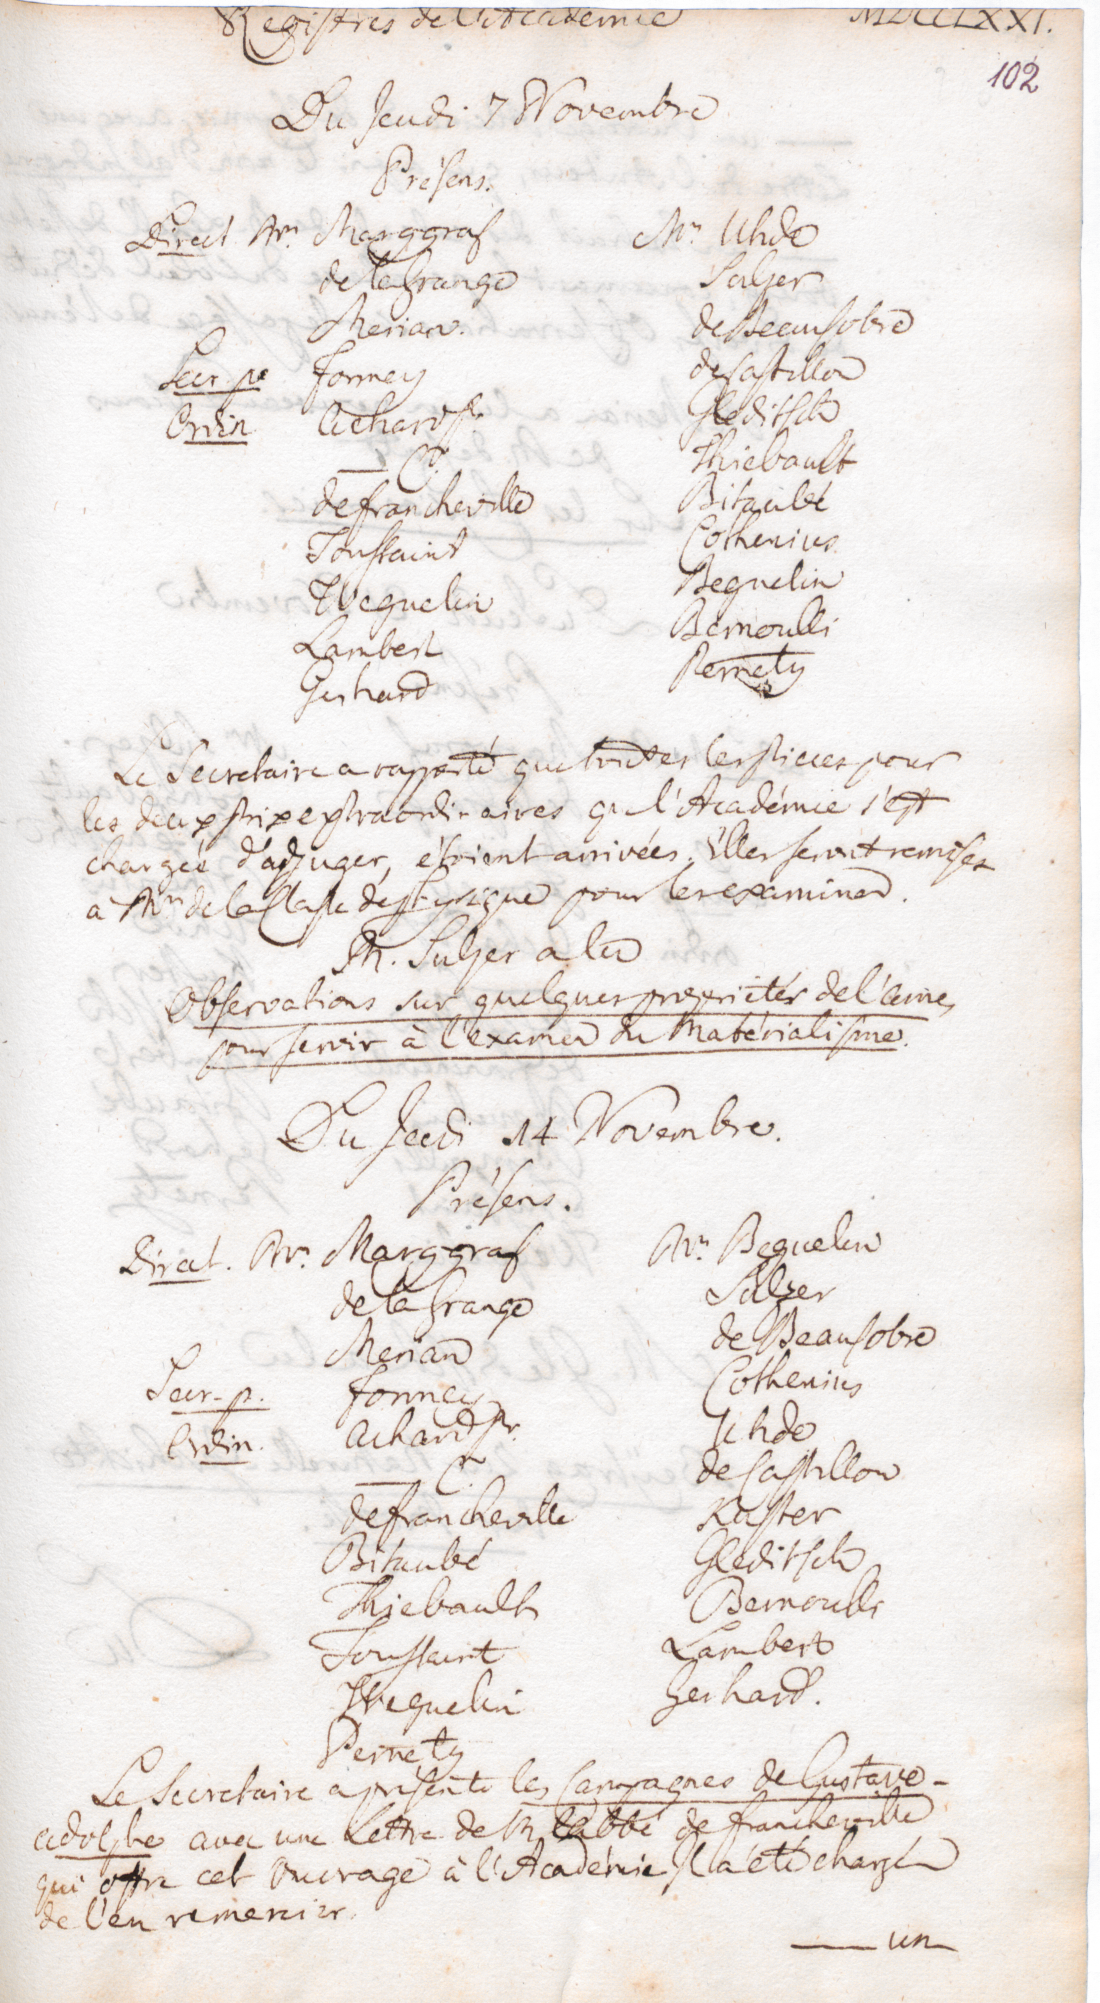 Registres de l'Academie MDCCLXXI.
102
Du Jeudi 7 Novembre
Présens.
Direct. Mrs. Marggraf
de la Grange
Merian.
Secr. p. Formey
Ordin. Achard p.
— C.
de Francheville
Toussaint
Weguelin
Lambert
Gerhard
Mrs. Uhde
Sulzer
de Beausobre
de Castillon
Gleditsch
Thiebault
Bitaubé
Cothenius.
Beguelin
Bernoulli
Pernety
Le Secretaire a rapporté que toutes les pieces pour
les deux prix extraordinaires qu l'Académie s'est
chargée d'adjuger, étoient arrivées. Elles seront remises
à Mrs de la Classe de physique pour les examiner.
M. Sulzer a lu
Observations sur quelques proprietés de l'ame,
pour servir à l'examen du Matérialisme.
Du Jeudi 14 Novembre.
Présens.
Direct. Mrs. Marggraf
de la Grange
Merian
Secr. p. Formey
Ordin. Achard pr.
— C.
de Francheville
Bitaubé
Thiebault
Toussaint
Weguelin
Pernety
Mrs. Beguelin
Sulzer
de Beausobre
Cothenius
Uhde
de Castillon
Kaster
Gleditsch
Bernoulli
Lambert
Gerhard.
Le Secretaire a presenté les Campagnes de Gustave-
adolphe avec une Lettre de M. l'abbé de Francheville
qui offre cet Ouvrage à l'Académie. Il a été chargé
de l'en remercier.
— un